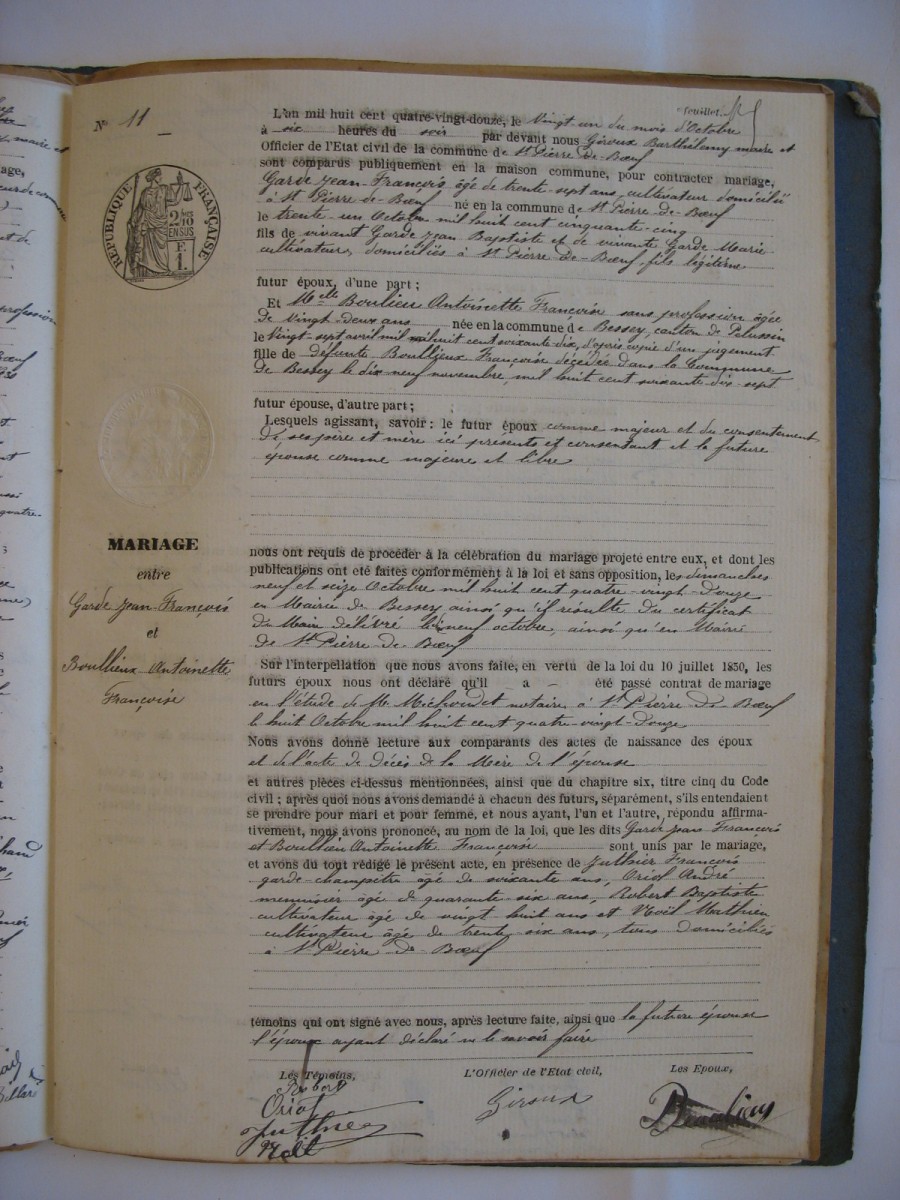 feuillet
Nº 11
L'an mil huit cent quatre-vingt-douze, le Vingt un du mois d'Octobre
à six heures du soir par devant nous Giroux Barthélemy maire et
Officier de l'Etat civil de la commune de St Pierre-de-Bœuf
sont comparus publiquement en la maison commune, pour contracter mariage,
Garde Jean-François, âgé de trente-sept ans, cultivateur domicilié
à St Pierre-de-Bœuf né en la commune de St Pierre-de-Bœuf
le trente-un Octobre mil huit cent cinquante-cinq
fils de vivant Garde Jean Baptiste et de vivante Garde Marie
cultivateurs, domiciliés à St Pierre-de-Bœuf, fils légitime
futur époux, d'une part ;
Et Melle Boulieu Antoinette Françoise sans profession âgée
de Vingt-deux ans née en la commune de Bessey, canton de Pelussin
le Vingt-sept avril mil huit cent soixante-dix, d'après copie d'un jugement
fille de défunte Boullieux Françoise décédée dans la Commune
de Bessey le dix-neuf novembre, mil huit cent soixante-dix-sept
futur épouse, d'autre part ;
Lesquels agissant, savoir : le futur époux comme majeur et du consentement
de ses père et mère ici présents et consentant et la future
épouse comme majeure et libre
MARIAGE
entre
Garde Jean-François
et
Boullieux Antoinette
Françoise
nous ont requis de procéder à la célébration du mariage projeté entre eux, et dont les
publications ont été faites conformément à la loi et sans opposition, les dimanches
neuf et seize Octobre mil huit cent quatre-vingt-douze
en Mairie de Bessey ainsi qu'il résulte du certificat
du Maire délivré le neuf octobre, ainsi qu'en Mairie
de St Pierre-de-Bœuf
Sur l'interpellation que nous avons faite, en vertu de la loi du 10 juillet 1850, les
futurs époux nous ont déclaré qu'il a été passé contrat de mariage
en l'étude de Me notaire à St Pierre-de-Bœuf
le huit Octobre mil huit cent quatre-vingt-douze
Nous avons donné lecture aux comparants des actes de naissance des époux
et de l'acte de décès de la Mère de l'épouse
et autres pièces ci-dessus mentionnées, ainsi que du chapitre six, titre cinq du Code
civil ; après quoi nous avons demandé à chacun des futurs, séparément, s'ils entendaient
se prendre pour mari et pour femme, et nous ayant, l'un et l'autre, répondu affirma-
tivement, nous avons prononcé, au nom de la loi, que les dits Garde Jean François
et Boullieu Antoinette Françoise sont unis par le mariage,
et avons du tout rédigé le présent acte, en présence de Juthier François
garde-champêtre âgé de soixante ans, Oriol André
menuisier âgé de quarante-six ans, Robert Baptiste
cultivateur âgé de vingt-huit ans et Noël Mathieu
cultivateur âgé de trente-six ans, tous domiciliés
à St Pierre-de-Bœuf
témoins qui ont signé avec nous, après lecture faite, ainsi que la future épouse
l'époux ayant déclaré ne le savoir faire
Les Témoins, L'Officier de l'Etat civil, Les Epoux,
Robert
Oriol Giroux
Juthier
RÉPUBLIQUE FRANÇAISE
2/10
EN SUS
F.
1.